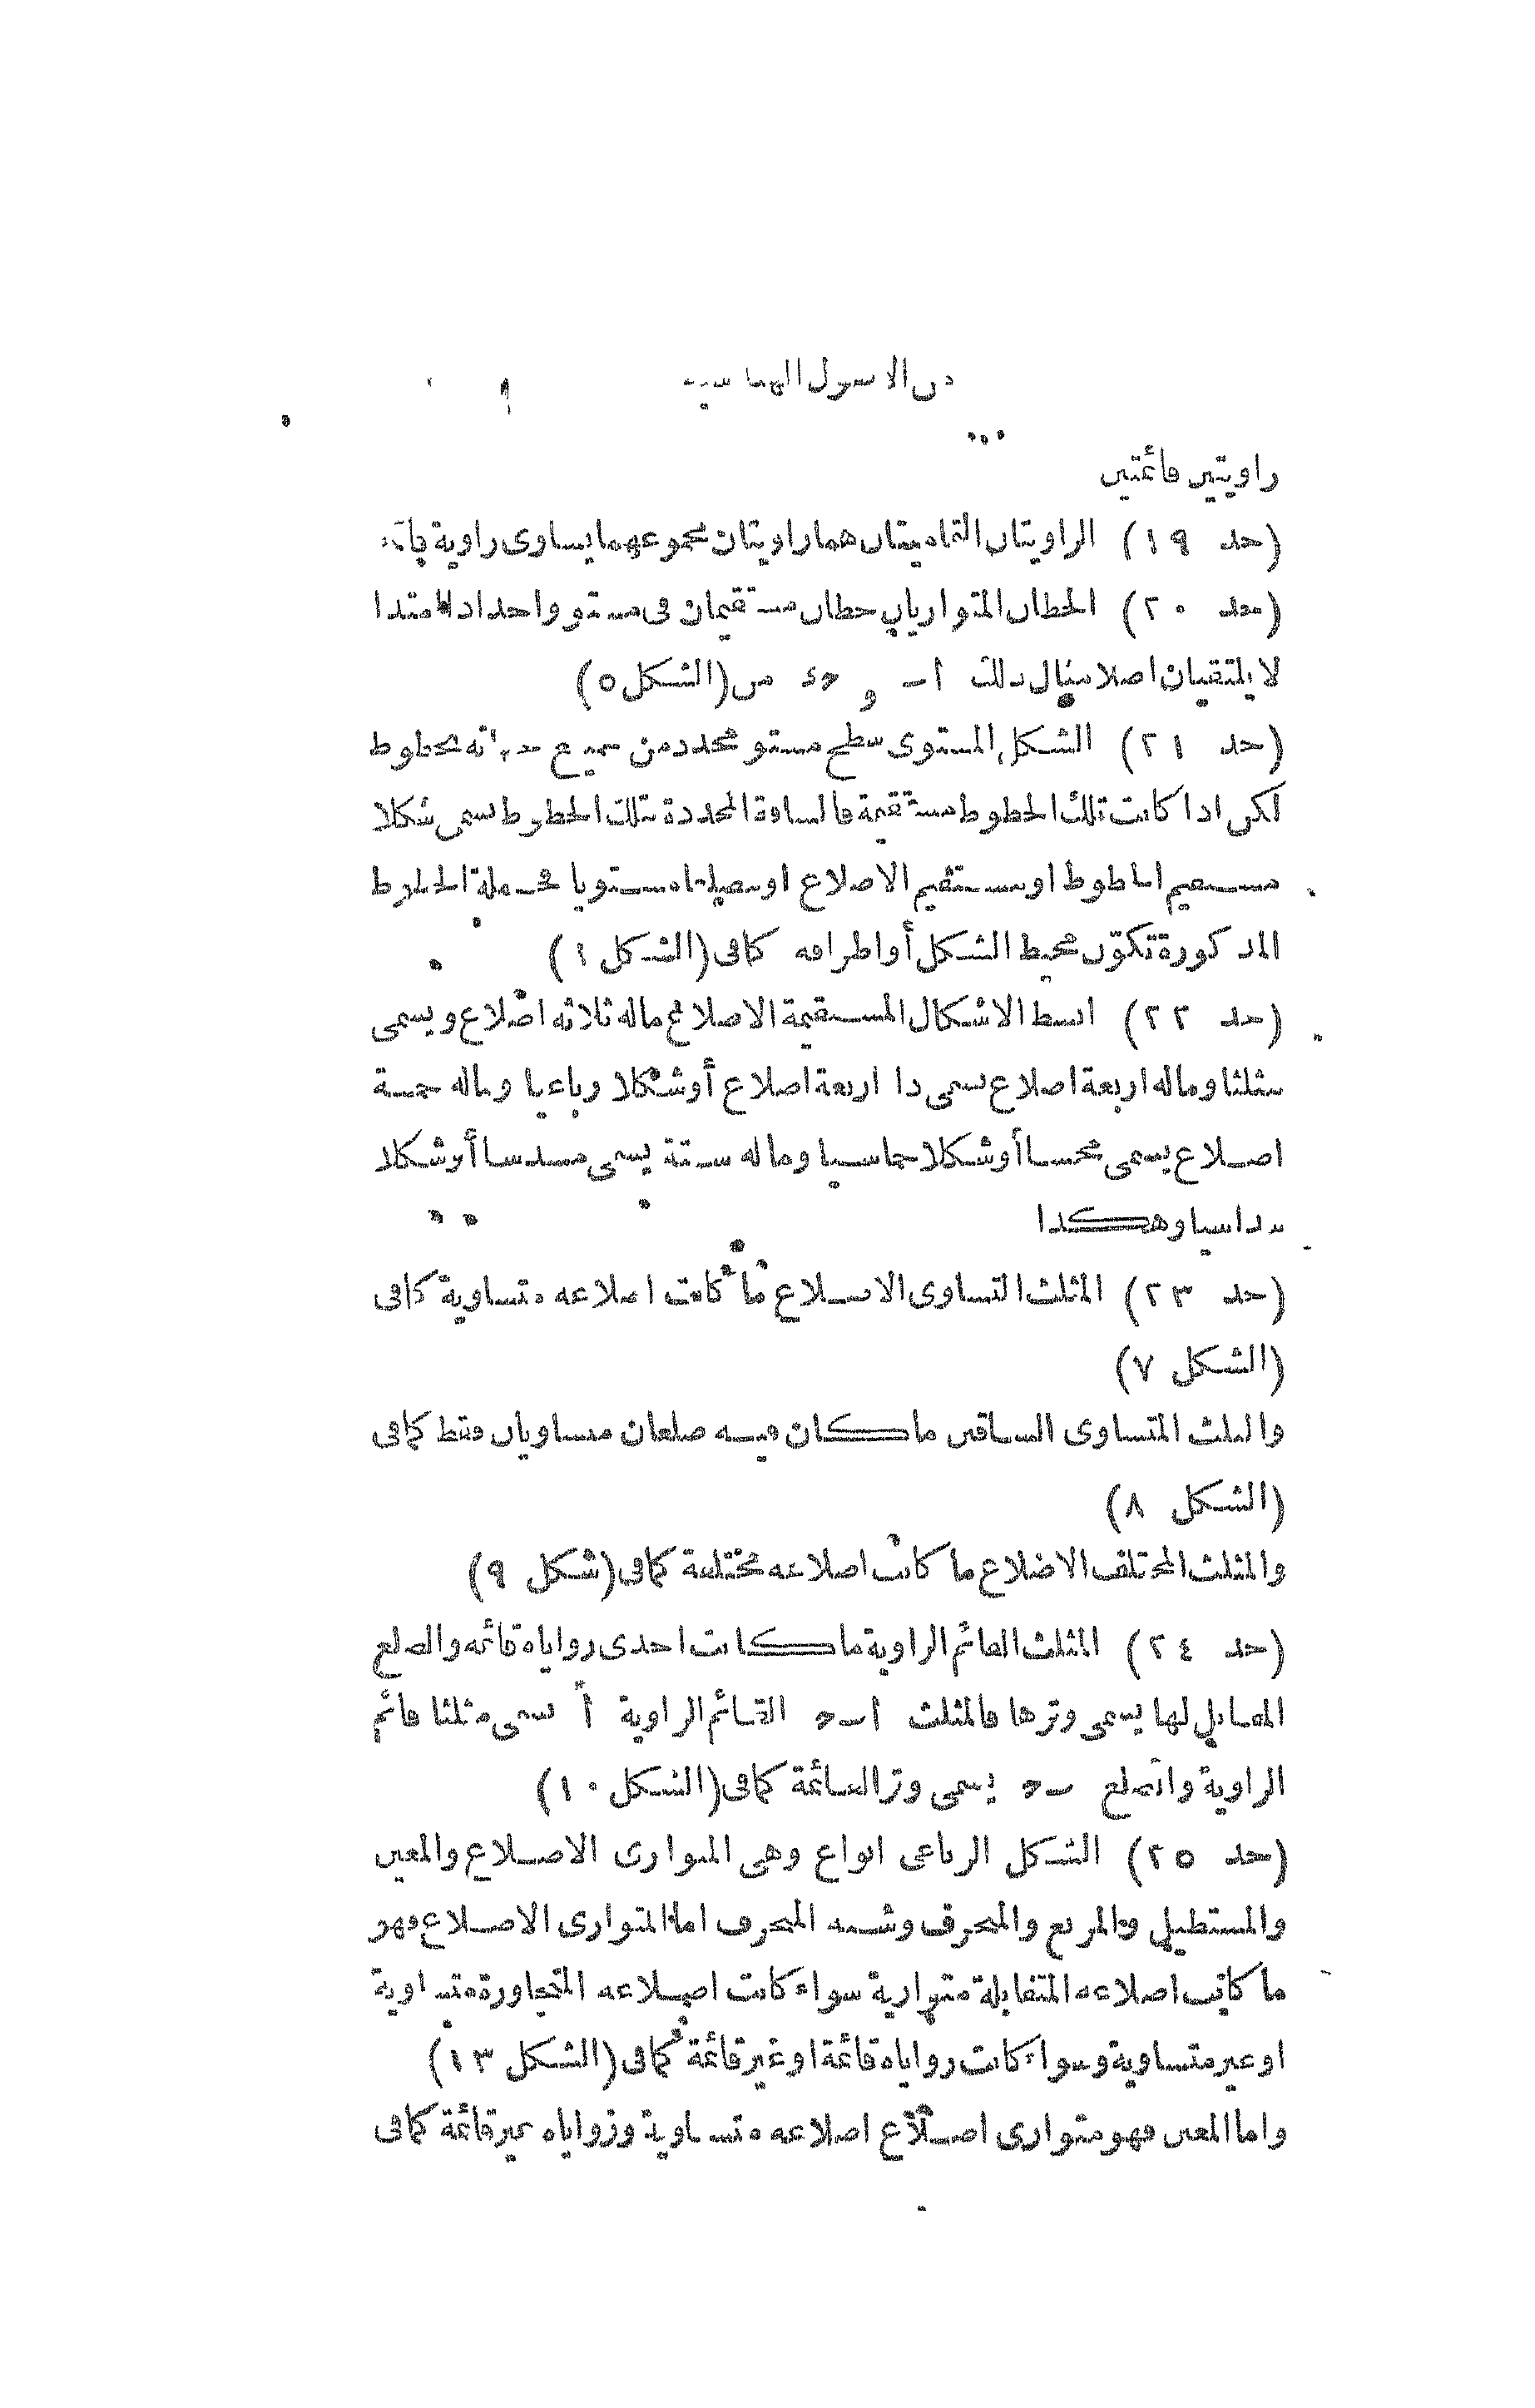 من الاصول الهندسية ٩
زاويتين قائمتين
(حد ١٩) الزاويتان التماميتان هما زاويتان مجموعهما يساوى زاوية قائمة
(حد ٢٠) الخطان المتوازيان خطان مستقيمان فى مستو واحد اذا امتدا
لا يلتقيان اصلا مثال ذلك اب و حء من (الشكل ٥)
(حد ٢١) الشكل المستوى سطح مستو محدد من جميع جهاته بخطوط
لكن اذا كانت تلك الخطوط مستقيمة فالمسافة المحددة بتلك الخطوط تسمى شكلا
مستقيم الخطوط او مستقيم الاضلاع او مضلعا مستويا فجملة الخطوط
المذكورة تكوّن محيط الشكل أو اطرافه كما فى (الشكل ٦)
(حد ٢٢) ابسط الاشكال المستقيمة الاضلاع ماله ثلاثة اضلاع ويسمى
مثلثا وماله اربعة اضلاع يسمى ذا اربعة اضلاع أو شكلا رباعيا وماله خمسة
اضلاع يسمى مخمسا أو شكلا خماسيا وماله ستة يسمى مسدسا أو شكلا
سداسيا وهكذا
(حد ٢٣) المثلث المتساوى الاضلاع ما كانت اضلاعه متساوية كما فى
(الشكل ٧)
والمثلث المتساوى الساقين ما كان فيه ضلعان متساويان فقط كما فى
(الشكل ٨)
والمثلث المختلف الاضلاع ما كانت اضلاعه مختلفة كما فى (شكل ٩)
(حد ٢٤) المثلث القائم الزاوية ما كانت احدى زواياه قائمة والضلع
المقابل لها يسمى وترها فالمثلث ابح القائم الزاوية أ يسمى مثلثا قائم
الزاوية والضلع بح يسمى وتر القائمة كما فى (الشكل ١٠)
(حد ٢٥) الشكل الرباعى انواع وهى المتوازى الاضلاع والمعين
والمستطيل والمربع والمنحرف وشبه المنحرف اما المتوازى الاضلاع فهو
ما كانت اضلاعه المتقابلة متوازية سواء كانت اضلاعه المتجاورة متساوية
او غير متساوية وسواء كانت زواياه قائمة او غير قائمة كما فى (الشكل ١٣)
واما المعين فهو متوازى اضلاع اضلاعه متساوية وزواياه غير قائمة كما فى